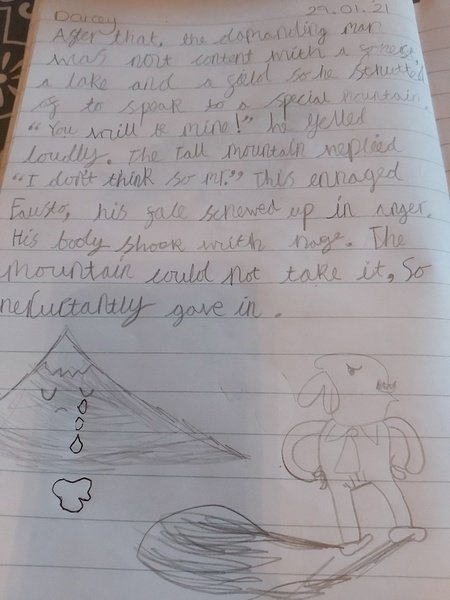 Darcey 29.01.21
After that, the demanding man
was not content with a forest,
a lake and a field so he strutted
off to speak to a special mountain.
"You will be mine!" he yelled
loudly. The tall mountain replied
"I don't think so mr." This enraged
Fausto, his fale screwed up in anger.
His body shook with rage. The
mountain could not take it, So
reluctantly gave in.